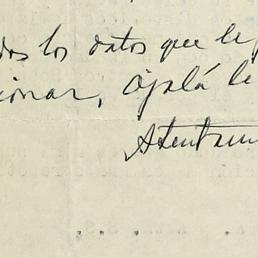 dos los datos que le p
ionar, ojalá le
Atentam